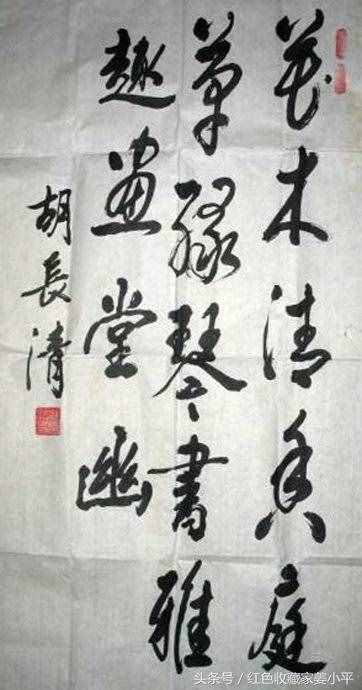 花木清香庭
草绿琴书雅
趣画堂幽
胡長清
头条号/红色收藏家姜小平